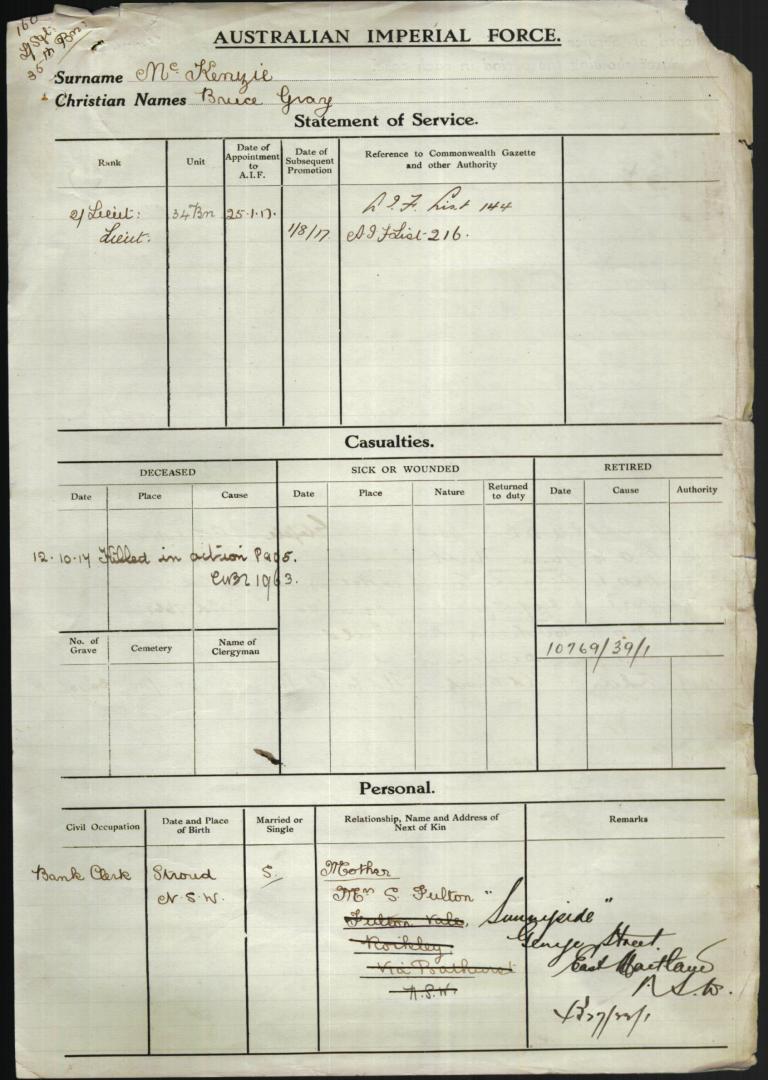 160
L/Sgt.
35th Bn.
AUSTRALIAN IMPERIAL FORCE.
Surname Mc Kenzie
Christian Names Bruce Gray
Statement of Service.
Rank
Unit
Date of Appointment to A.I.F.
Date of Subsequent Promotion
Reference to Commonwealth Gazette and other Authority
2/Lieut: 34 Bn 25.1.17. A.I.F. List 144
Lieut. 1/8/17 A I F List 216.
Casualties.
DECEASED
SICK OR WOUNDED
RETIRED
Date
Place
Cause
Date
Place
Nature
Returned to duty
Date
Cause
Authority
12.10.17 Killed in action Pa 95.
1963.
No. of Grave
Cemetery
Name of Clergyman
10769/39/1
Personal.
Civil Occupation
Date and Place of Birth
Married or Single
Relationship, Name and Address of Next of Kin
Remarks
Bank Clerk
Stroud
N.S.W.
S.
Mother
Mrs S. Fulton
Fulton Vale,
Rockley
Via Bathurst
N.S.W.
"Sunnyside"
George Street
East Maitland
N.S.W.
27/22/1